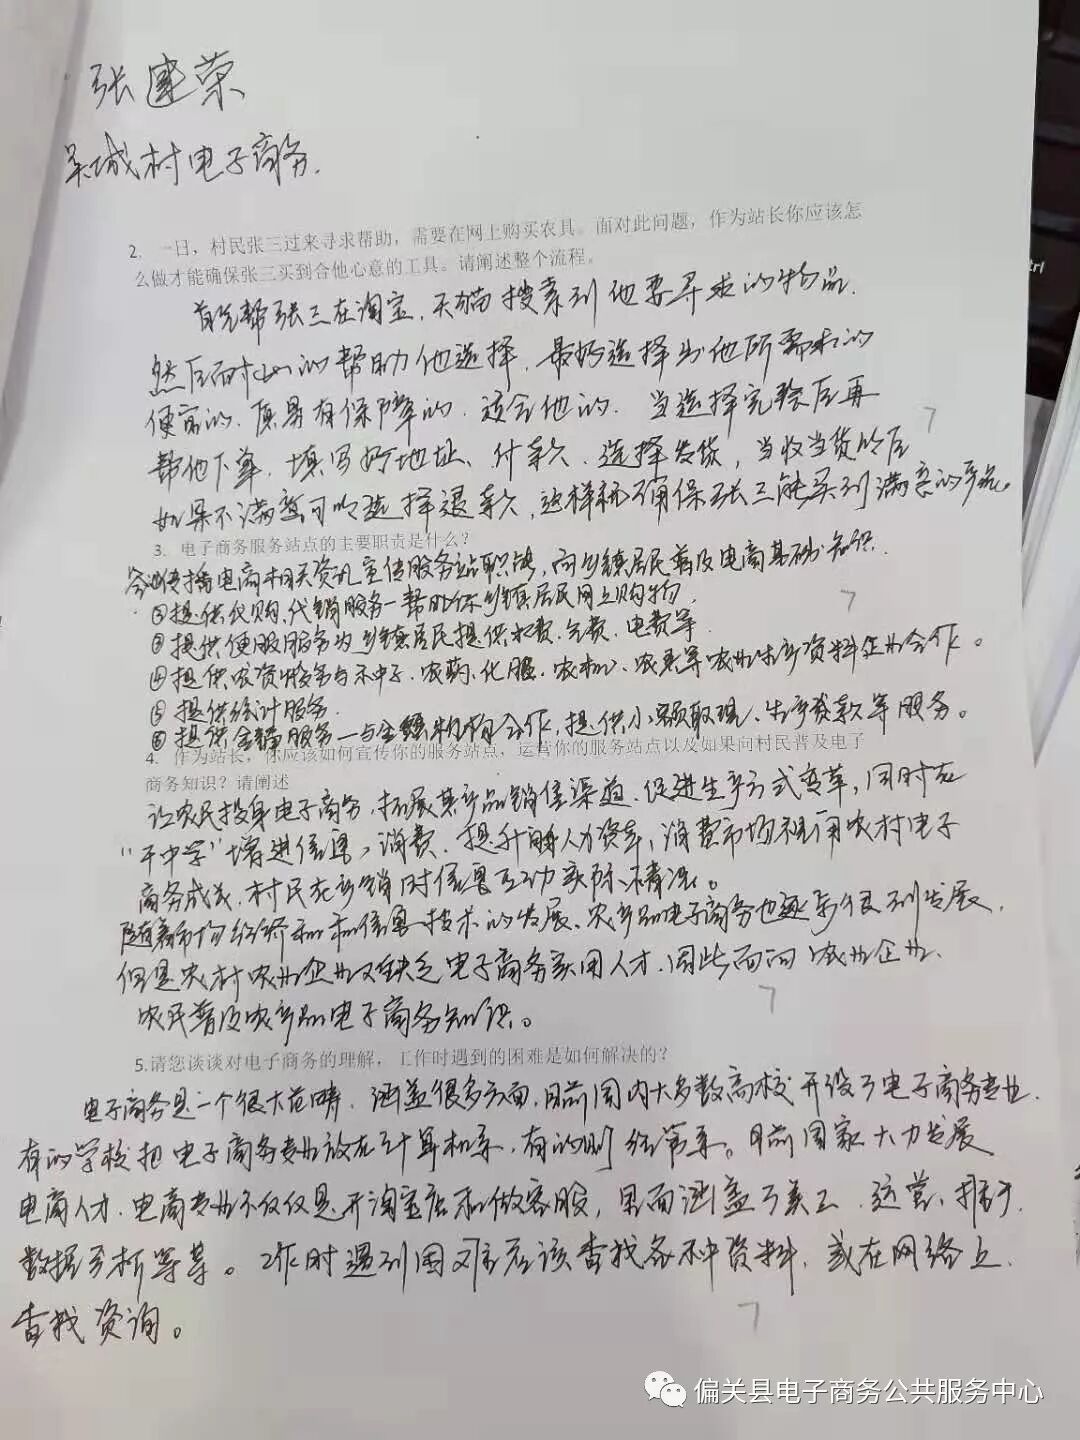 张建荣
村电子商务.
2. 一日，村民张三过来寻求帮助，需要在网上购买农具。面对此问题，作为站长你应该怎
么做才能确保张三买到合他心意的工具。请阐述整个流程。
首先帮张三在淘宝、天猫搜索到他要寻求的物品.
然后耐心的帮助他选择，最好选择出他所需求的
便宜的、质量有保障的、适合他的. 当选择完毕后再
7
帮他下单，填写好地址、付款、选择发货，当收当货的后
如果不满意可以选择退款，这样就可确保张三能买到满意的
3. 电子商务服务站点的主要职责是什么？
传播电商相关资讯宣传服务站职能，向乡镇居民普及电商基础知识.
②提供代购、代销服务一帮助乡镇居民网上购物
7
③提供便服服务为乡镇居民提供水费、气费、电费等
④提供农资服务与种子、农药、化肥、农机、农具等农业生产资料企业合作。
⑤提供统计服务.
⑥提供金融服务一与金融机构合作，提供小额取现、生产贷款等服务。
4. 作为站长，你应该如何宣传你的服务站点，运营你的服务站点以及如果向村民普及电子
商务知识？请阐述
让农民投身电子商务，拓展其产品销售渠道、促进生产方式变革，同时在
“干中学”增进信息、消费、提升人力资本，消费市场利用农村电子
商务成长，村民在产销时信息互动实际情况。
随着市场经济和信息技术的发展、农产品电子商务也逐步得到发展.
但是农村农业企业又缺乏电子商务实用人才，因此面向农业企业、
7
农民普及农产品电子商务知识。
5.请您谈谈对电子商务的理解，工作时遇到的困难是如何解决的？
电子商务是一个很大范畴，涵盖很多方面，目前国内大多数高校开设了电子商务专业.
有的学校把电子商务专业放在计算机系，有的则经管系。目前国家大力发展
电商人才、电商专业不仅仅是开淘宝店和做客服，里面涵盖了美工、运营、推广
数据分析等等。工作时遇到困难应该查找各种资料，或在网络上
查找资询。
7
偏关县电子商务公共服务中心